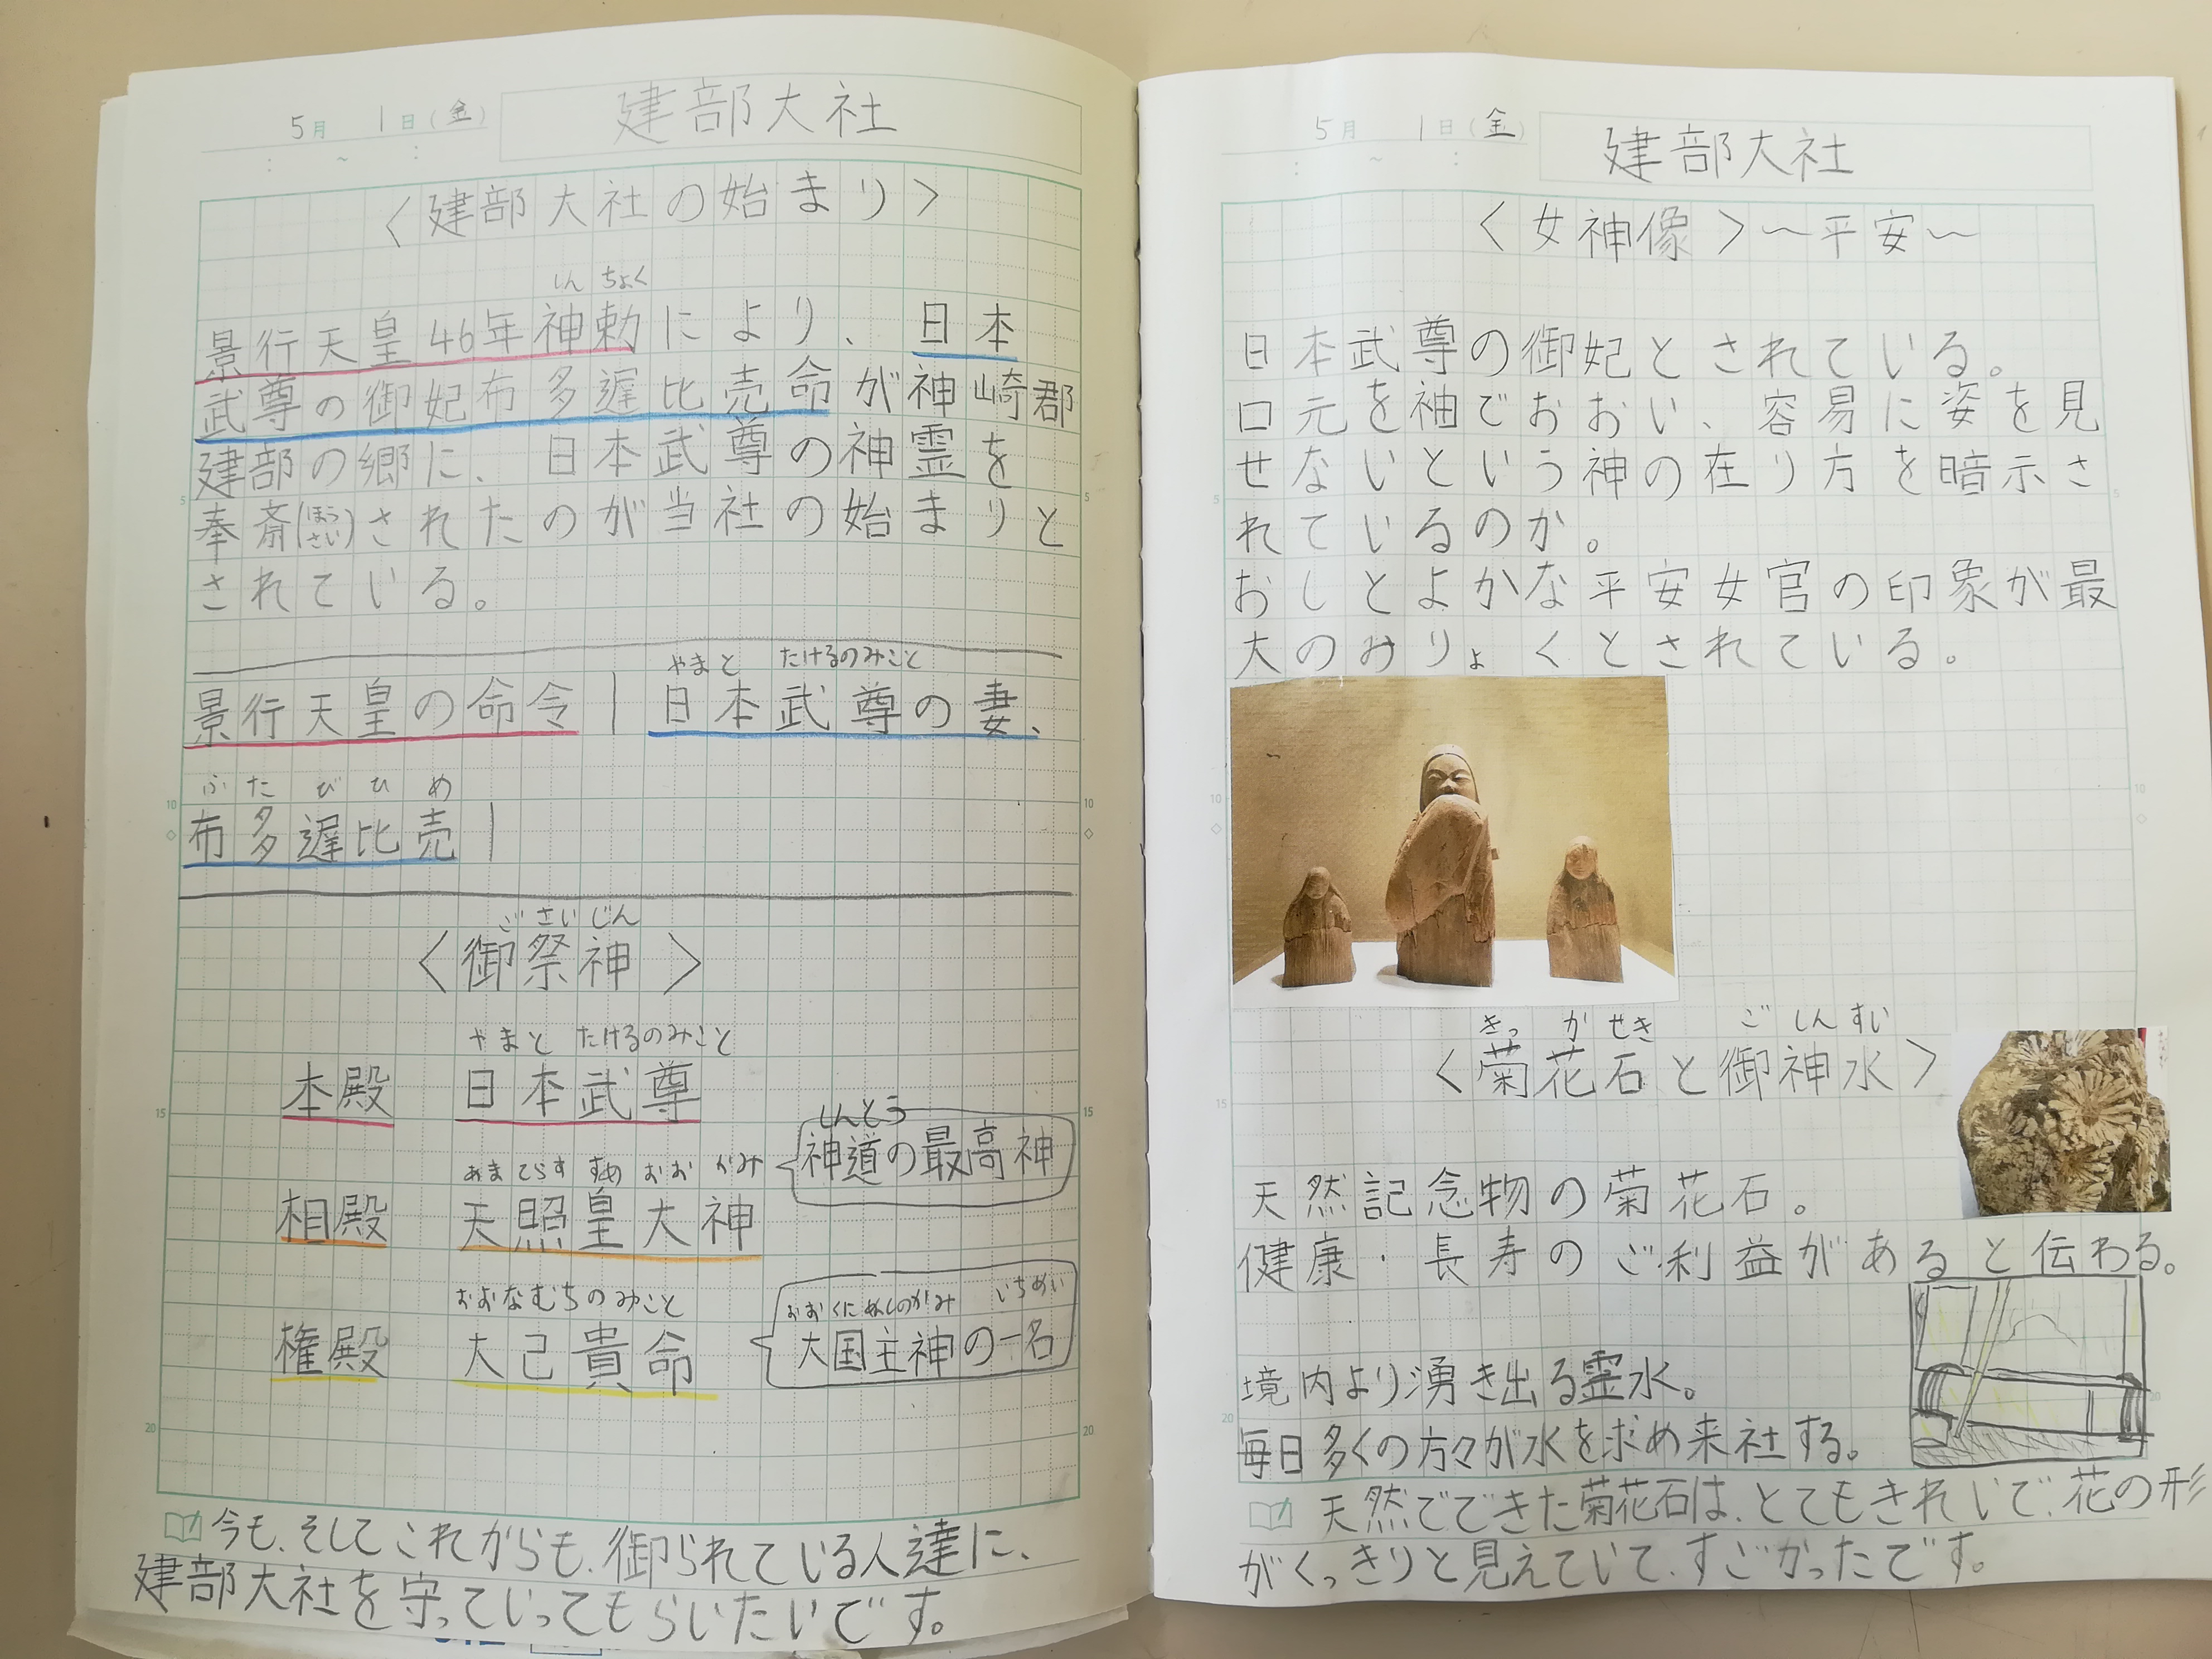 5月 1日(金) 建部大社
<建部大社の始まり>
しん ちょく
景行天皇46年神勅により、日本
武尊の御妃布多遅比売命が神崎郡
建部の郷に、日本武尊の神霊を
奉斎(ほうさい)されたのが当社の始まりと
されている。
やまと たけるのみこと
景行天皇の命令|日本武尊の妻、
ふ た ぢ ひ め
布多遅比売|
ご さい じん
<御祭神>
やまと たけるのみこと
本殿 日本武尊
しんとう
神道の最高神
あま てらす すめ おお かみ
相殿 天照皇大神
おおなむちのみこと
権殿 大己貴命
おお くに ぬしのかみ いちめい
大国主神の一名
今も、そしてこれからも、御られている人達に、
建部大社を守っていってもらいたいです。
5月 1日(金) 建部大社
<女神像>~平安~
日本武尊の御妃とされている。
口元を袖でおおい、容易に姿を見
せないという神の在り方を暗示さ
れているのか。
おしとよかな平安女官の印象が最
大のみりょくとされている。
きっ か せき ご しん すい
<菊花石と御神水>
天然記念物の菊花石。
健康・長寿のご利益があると伝わる。
境内より湧き出る霊水。
毎日多くの方々が水を求め来社する。
天然でできた菊花石は、とてもきれいで、花の形
がくっきりと見えていて、すごかったです。
5
10
15
20
5
10
15
20